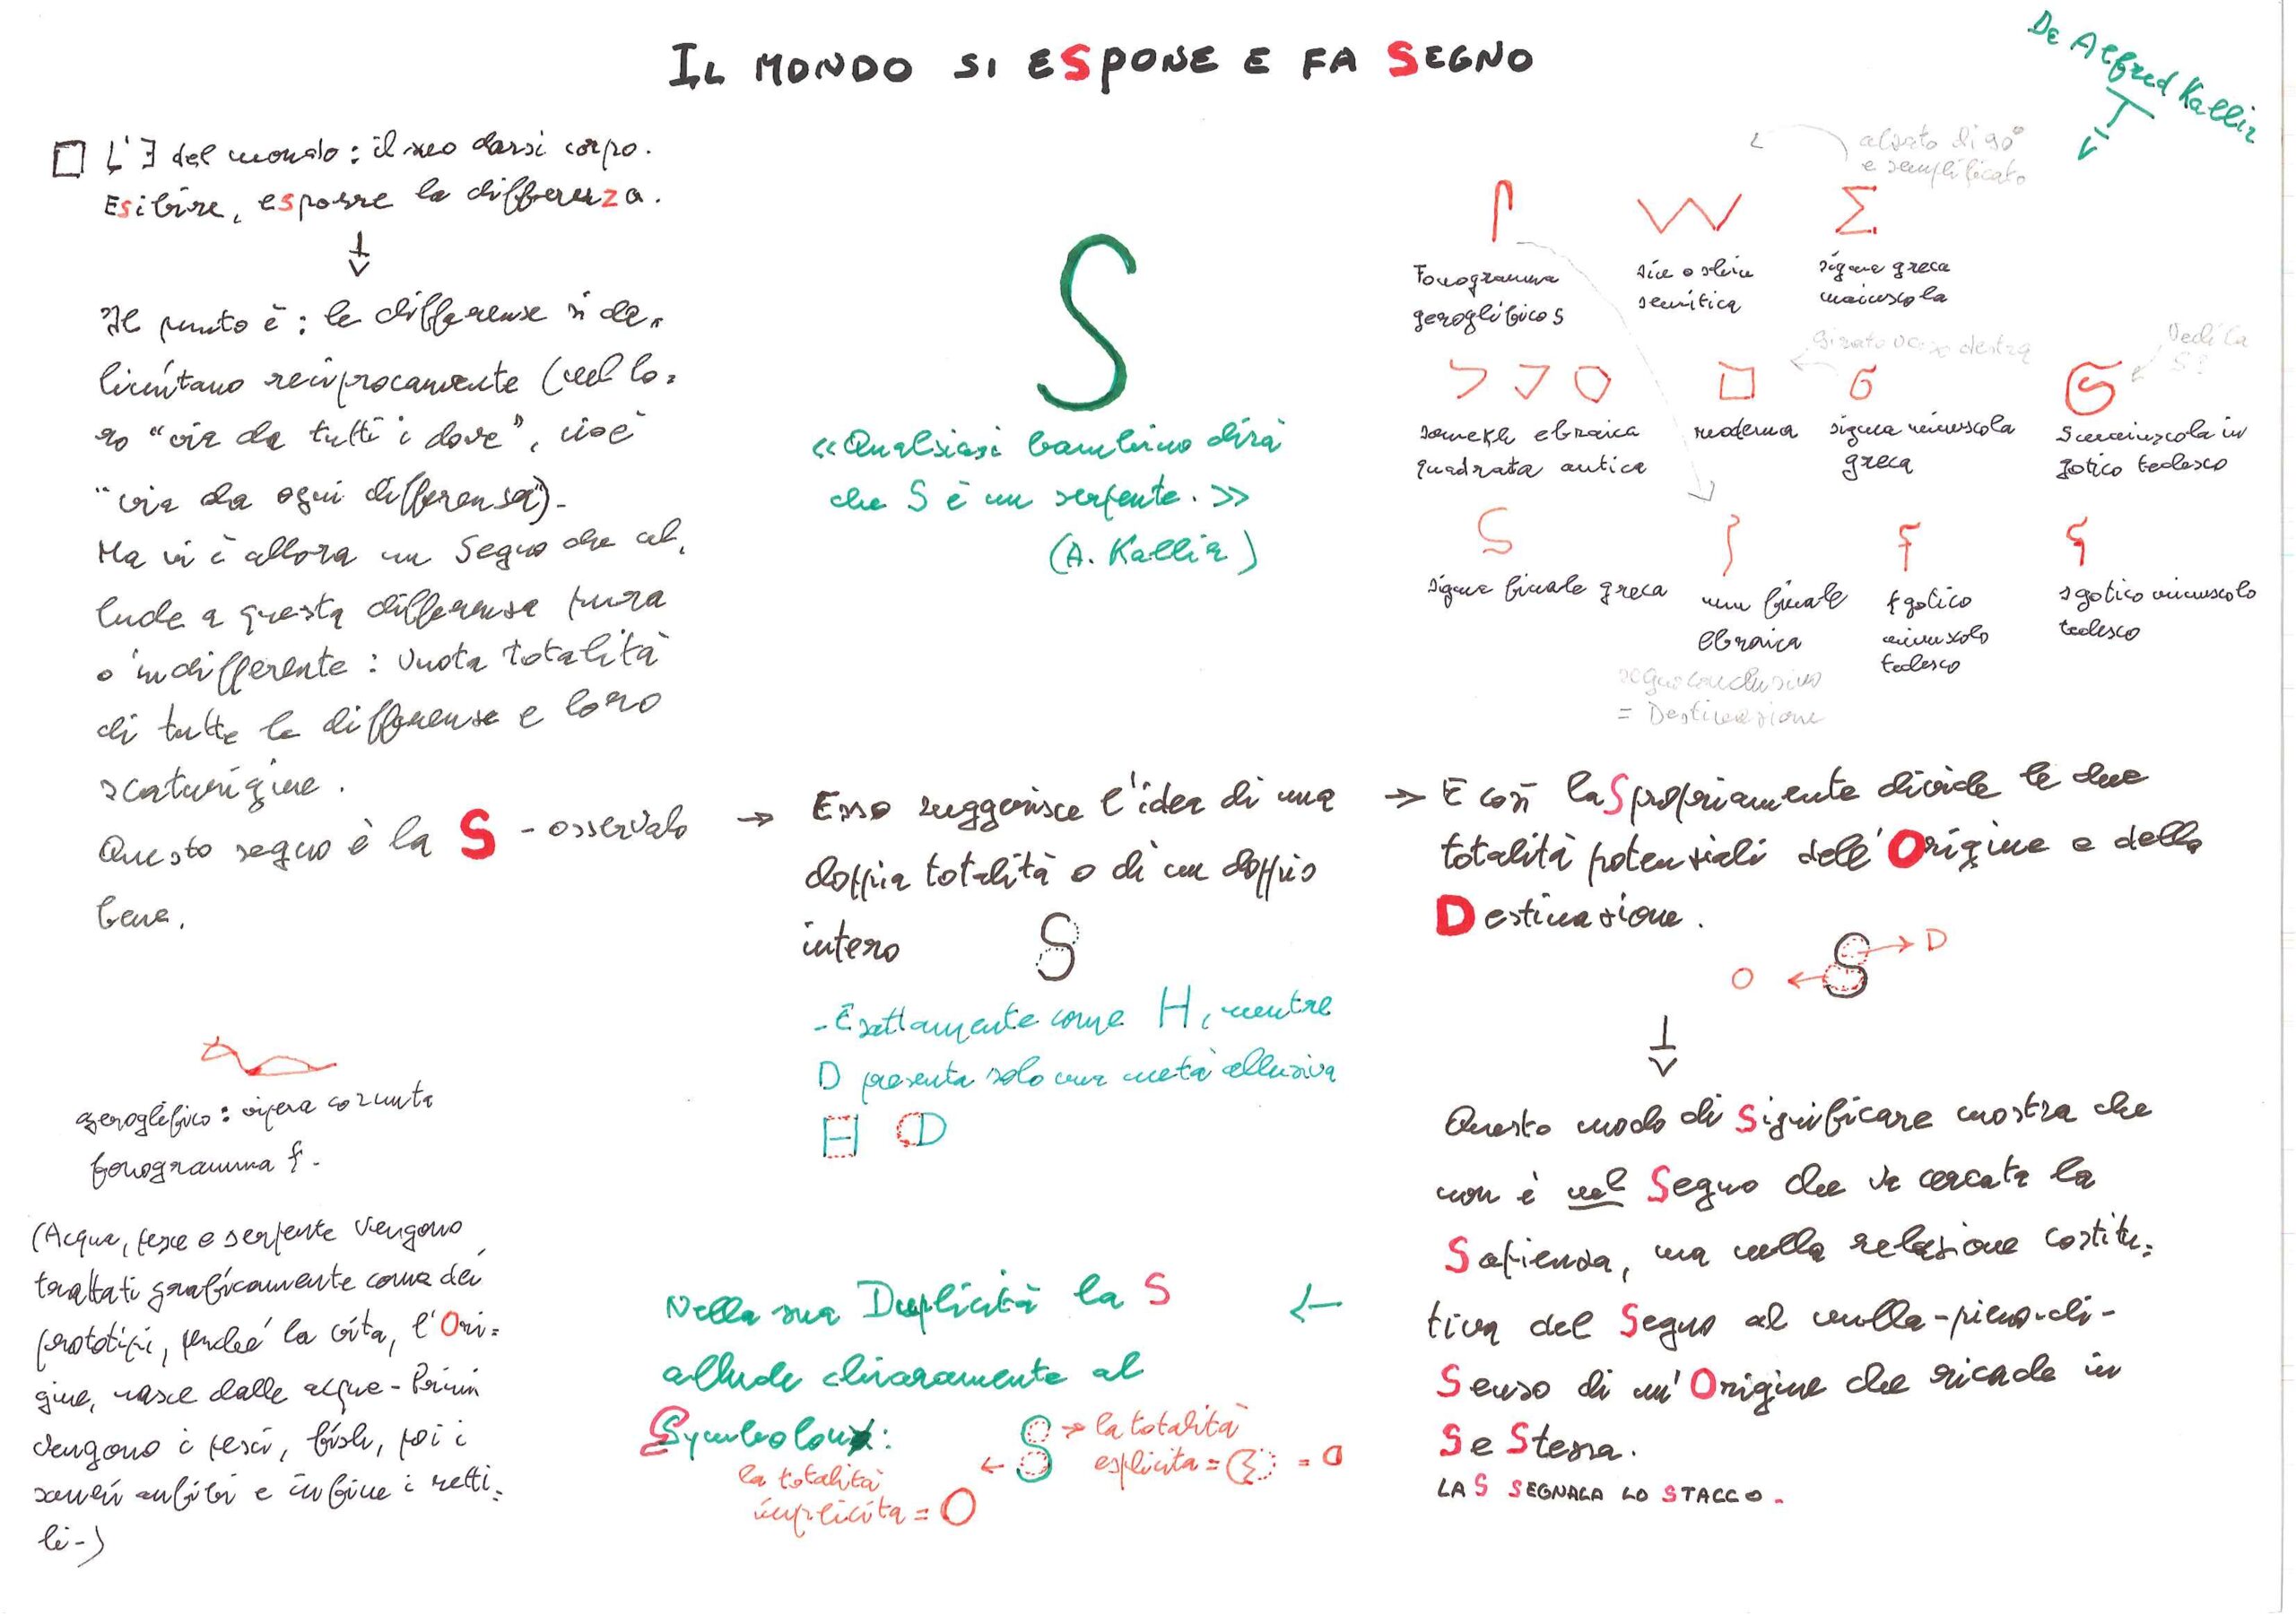 IL MONDO SI ESPONE E FA SEGNO
De Alfred Kallir
L'∃ del mondo: il suo darsi corpo.
Esibire, esporre la differenza.
Il punto è: le differenze si de-
limitano reciprocamente (nel lo-
ro "via da tutti i dove", cioè
"via da ogni differenza").
Ma vi è allora un Segno che al-
lude a questa differenza pura
o indifferente: vuota totalità
di tutte le differenze e loro
scaturigine.
Questo segno è la S - osservalo
bene.
geroglifico: vipera cornuta
fonogramma f.
(Acqua, pesce e serpente vengono
trattati graficamente come dei
prototipi, perché la vita, l'Ori=
gine, nasce dalle acque - Prima
vengono i pesci, poi i
sauri anfibi e infine i retti=
li-)
S
«Qualsiasi bambino dirà
che S è un serpente.»
(A. Kallir)
Esso suggerisce l'idea di una
doppia totalità o di un doppio
intero S
- Esattamente come H, mentre
D presenta solo una metà allusiva
H D
Nella sua Duplicità la S
allude chiaramente al
Symbolon:
la totalità
esplicita = = D
la totalità
implicita = O
alzato di 90°
e semplificato
W Σ
Fonogramma
geroglifico S
sin o shin
semitica
sigma greca
maiuscola
girato verso destra
Vedi la
S?
samekh ebraica
quadrata antica
moderna
sigma minuscola
greca
S maiuscola in
gotico tedesco
sigma finale greca
nun finale
ebraica
f gotico
minuscolo
tedesco
s gotico minuscolo
tedesco
segno conclusivo
= Destinazione
E così la S propriamente divide le due
totalità potenziali dell'Origine e della
Destinazione.
O S D
Questo modo di Significare mostra che
non è nel Segno che va cercata la
Sapienza, ma nella relazione costitu=
tiva del Segno al nulla-pieno-di-
Senso di un'Origine che ricade in
Se Stessa.
LA S SEGNALA LO STACCO.